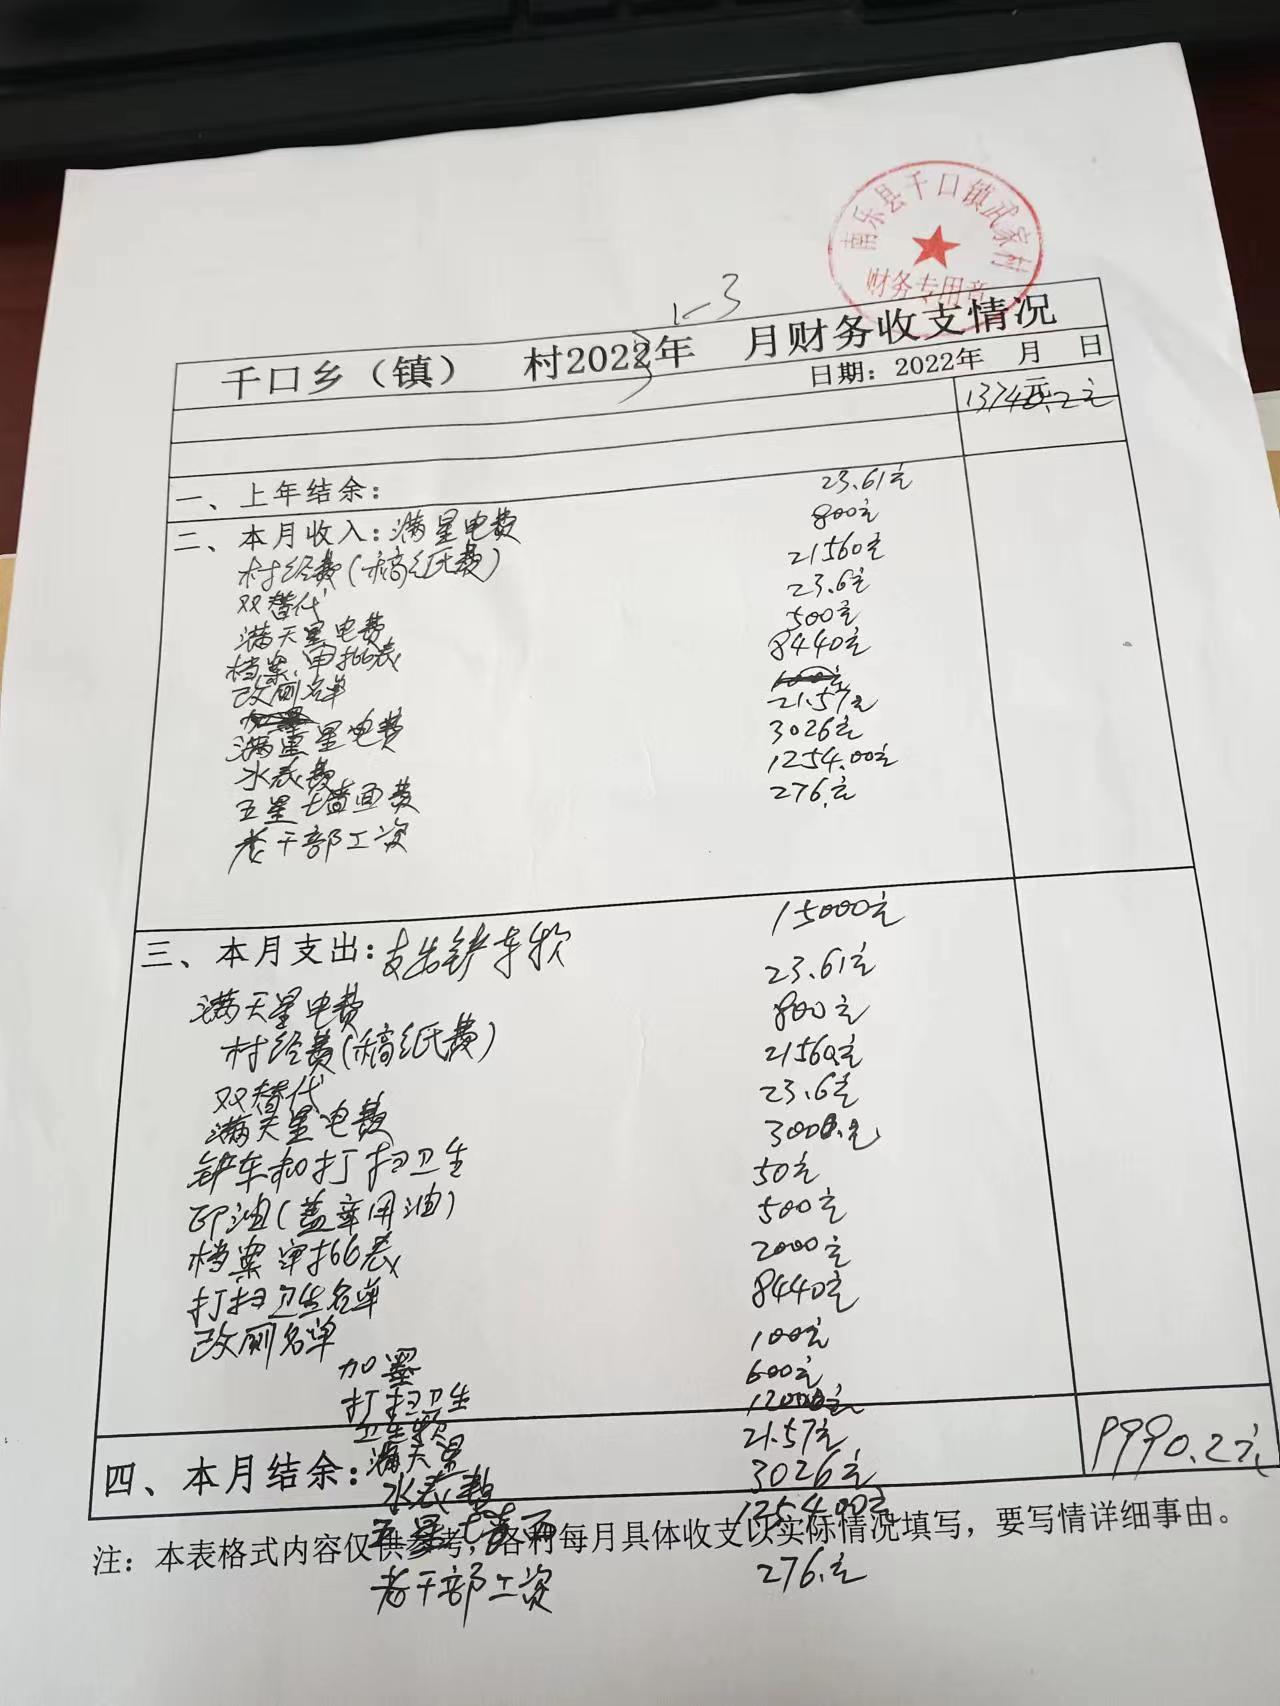 南乐县千口镇武家村
财务专用章
1-3
千口乡（镇） 村2023年 月财务收支情况
日期：2022年 月 日
一、上年结余：
二、本月收入：满星电费 23.61元
村经费(稿纸费) 800元
双替代 21560元
满天星电费 23.6元
档案、审批表 500元
改厕名单 8440元
满星星电费 21.57元
水表费 3026元
五星墙面费 1254.00元
老干部工资 276.元
三、本月支出：支出铲车款 15000元
满天星电费 23.61元
村经费(稿纸费) 800元
双替代 21560元
满天星电费 23.6元
铲车和打扫卫生 3000元
印油(盖章用油) 50元
档案审批表 500元
打扫卫生名单 2000元
改厕名单 8440元
加墨 100元
打扫卫生 600元
卫生款 1200元
四、本月结余：满天星 21.57元 9990.2元
水表费 3026元
五星墙面 1254.00元
注：本表格式内容仅供参考，各村每月具体收支以实际情况填写，要写情详细事由。
老干部工资 276.元